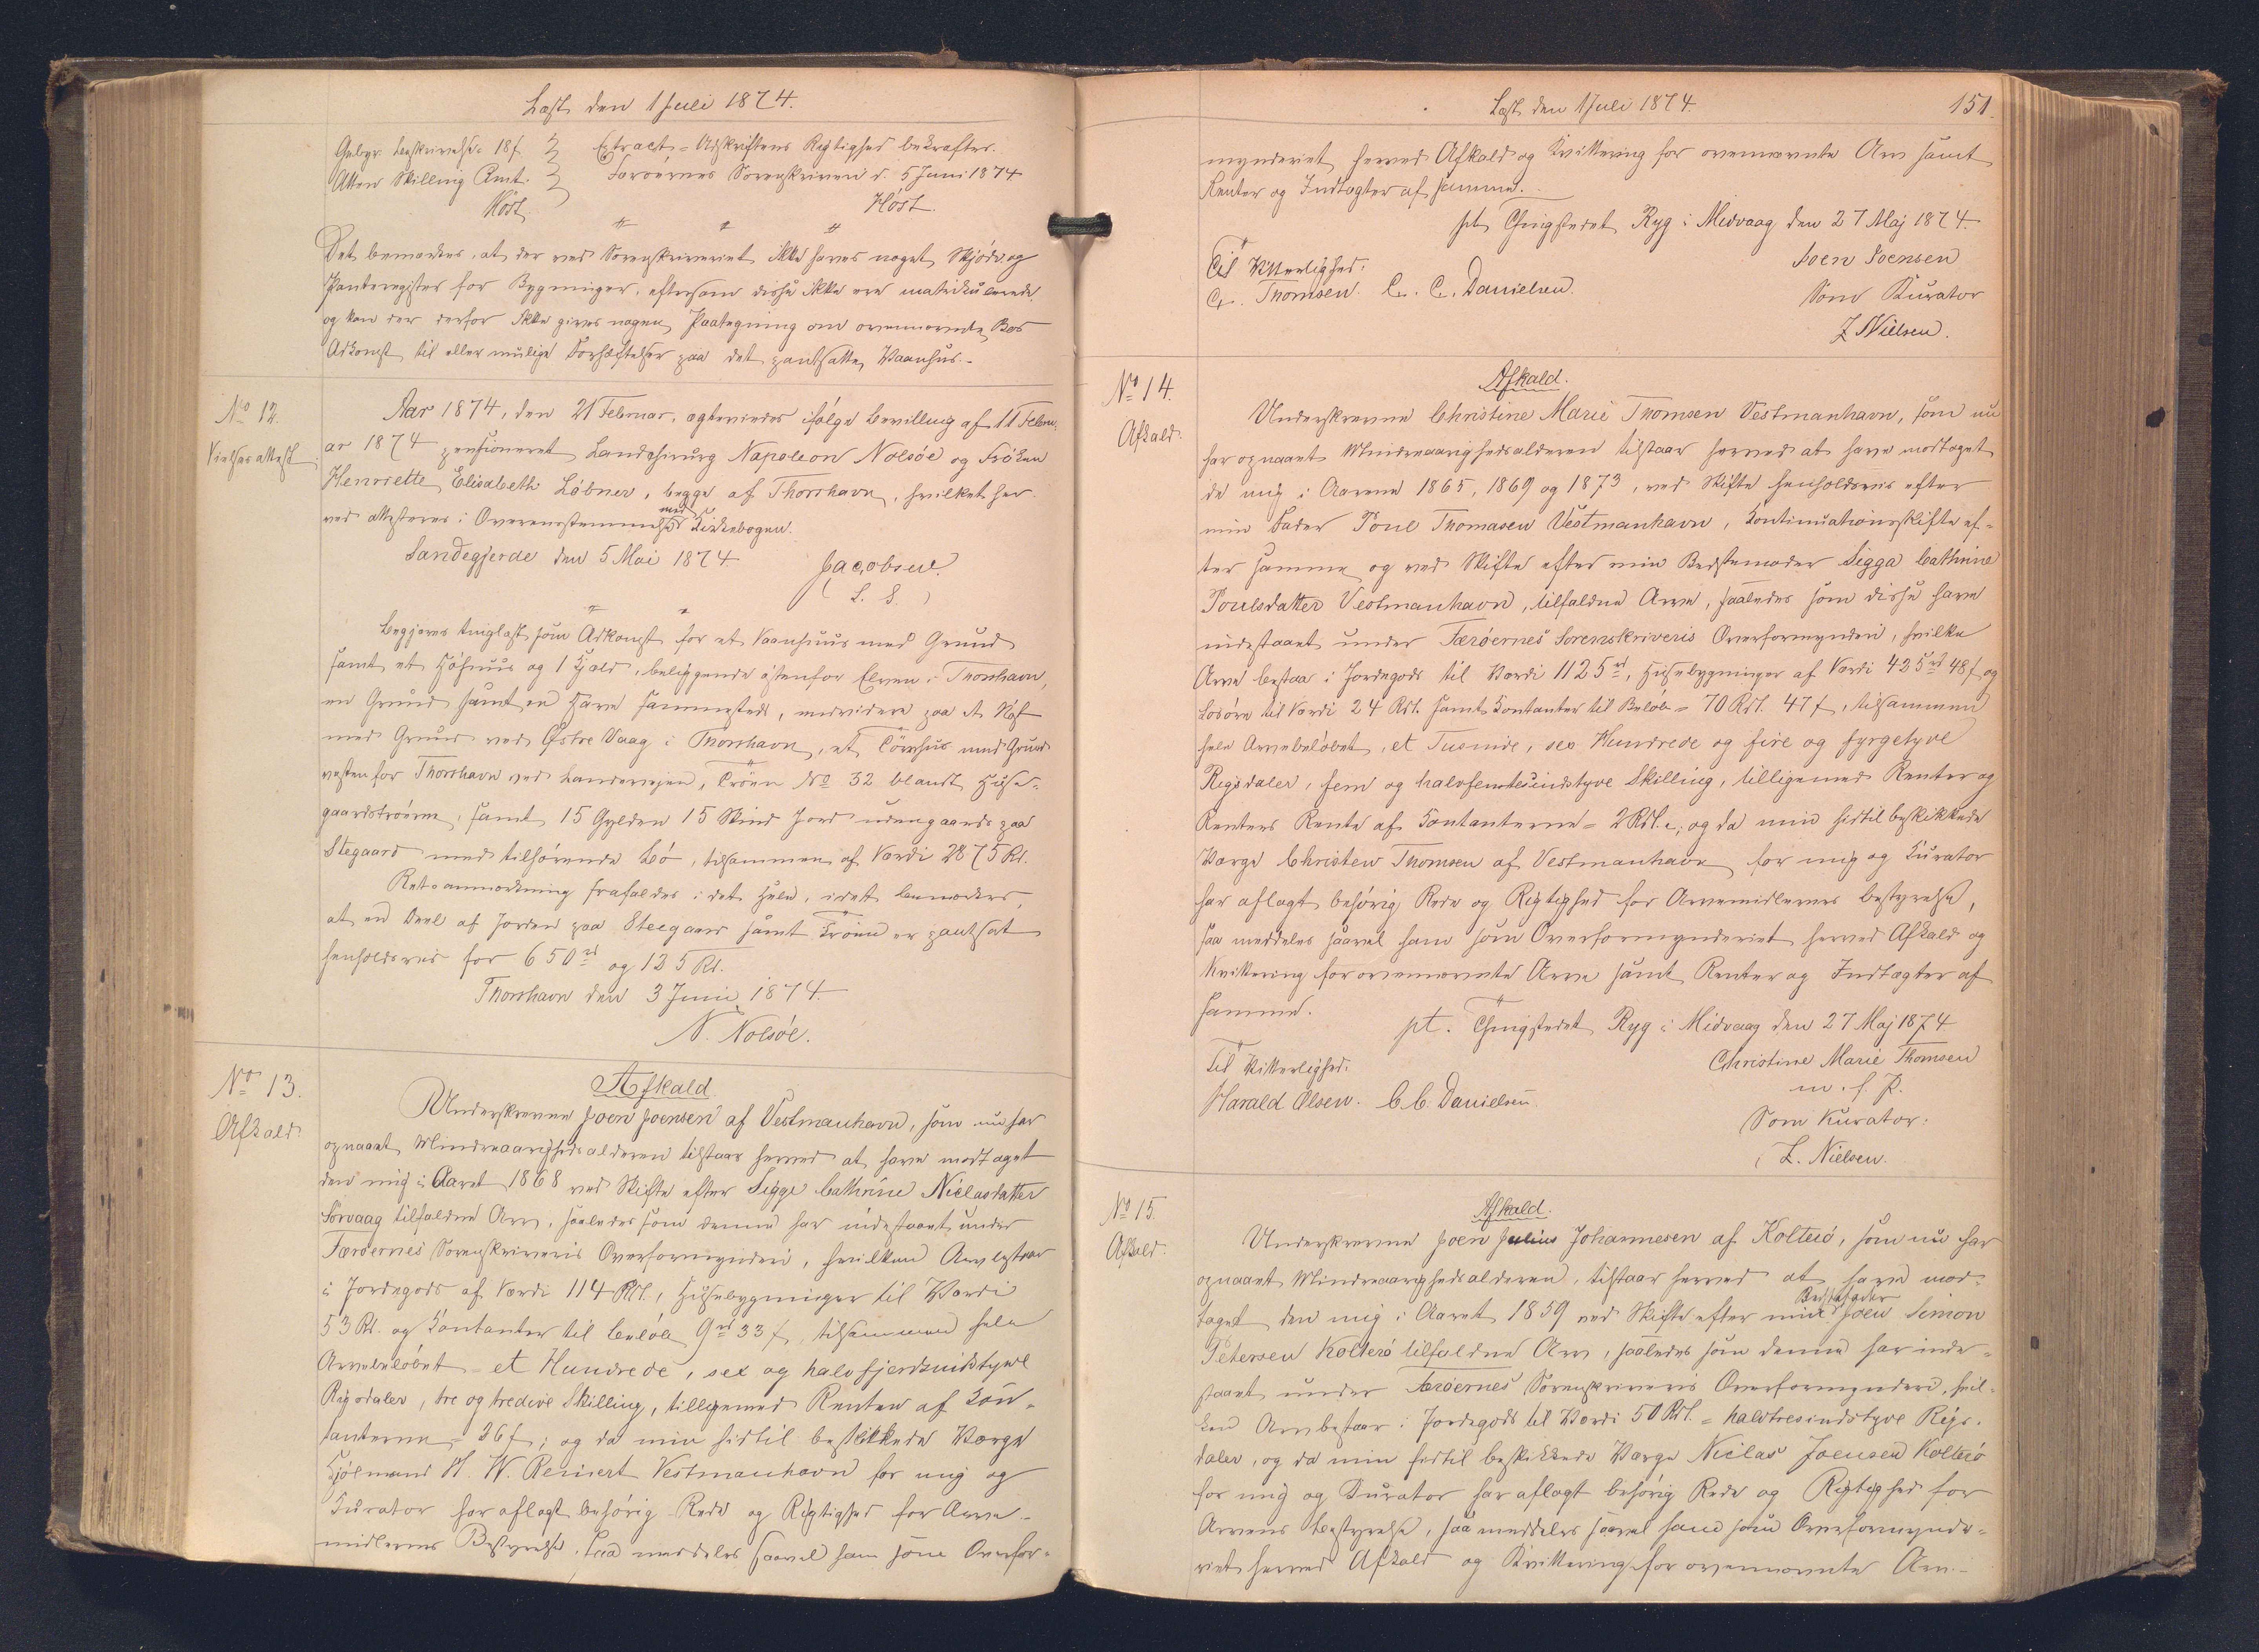 Læst den 1 Juli 1874.
Gebyr Beskrivelse 18 f.
Atten Skilling Cmt.
Höst
Extract-Afskriftens Rigtighed bekræftes.
Færöernes Sorenskriveri d. 5 Juni 1874
Höst.
Det bemærkes, at der ved Sorenskriveriet ikke haves noget Skjöde og
Panteregister for Bygninger, eftersom disse ikke ere matriculerede,
og kan der derfor ikke gives nogen Paategning om ovennævnte Bos
Adkomst til eller mulige Forhæftelser paa det pantsatte Vaanhus.-
No 12.
Vielsesattest
Aar 1874, den 21 Februar, ægteviedes ifölge Bevilling af 11 Febru-
ar 1874 pensioneret Landchirurg Napoleon Nolsöe og Fröken
Henriette Elisabeth Löbner, begge af Thorshavn, hvilket her-
ved attesteres i Overensstemmelse med Kirkebogen.
Sandegjerde den 5 Mai 1874
Jacobsen.
(L. S.)
Begjæres tinglæst som Adkomst for et Vaanhuus med Grund
samt et Höhuus og 1 Hjald, beliggende östenfor Elven i Thorshavn,
en Grund samt en Have sammesteds, endvidere paa et Nöst
med Grund ved Østre Vaag i Thorshavn, et Törvhus med Grund
vestenfor Thorshavn ved Landevejen, Tröen No 32 blandt Huse-
gaardströerne, samt 15 Gylden 15 Skind Jord udengaards paa
Stegaard med tilhörende Lö, tilsammen af Værdi 2875 Rd.
Retsanmærkning frafaldes i det Hele, idet bemærkes,
at en Deel af Jorden paa Steegaard samt Tröen er pantsat
henholdsvis for 650 rd og 125 Rd.
Thorshavn den 3 Juni 1874.
N. Nolsöe.
No 13.
Afkald.
Afkald
Underskrevne Joen Joensen af Vestmanhavn, som nu har
opnaaet Mindreaarighedsalderen tilstaar herved at have modtaget
den mig i Aaret 1868 ved Skifte efter Sigge Cathrine Niclasdatter
Sörvaag tilfaldne Arv, saaledes som denne har indestaaet under
Færöernes Sorenskriveris Overformynderi, hvilken Arv bestaar
i Jordegods af Værdi 114 Rdl., Husebygninger til Værdi
53 Rd. og Contanter til Belöb 9 rd 33 f, tilsammen hele
Arvebelöbet = et Hundrede, sex og halvfjerdsindstyve
Rigsdaler, tre og tredive Skilling, tilligemed Renten af Con-
tanterne = 36 f; og da min hidtil beskikkede Værge
Hjelmand H. W. Reinert Vestmanhavn for mig og
Curator har aflagt behörig Rede og Rigtighed for Arve-
midlernes Bestyrelse, saa meddeles saavel ham som Overfor-
Læst den 1 Juli 1874.
151.
mynderiet herved Afkald og Kvittering for ovennævnte Arv samt
Renter og Indtægter af samme.
pt. Thingstedet Ryg i Midvaag den 27 Maj 1874.
Til Vitterlighed:
Joen Joensen
Thomsen. C. C. Danielsen.
Som Kurator
Z Nielsen.
No 14.
Afkald.
Afkald.
Underskrevne Christine Marie Thomsen Vestmanhavn, som nu
har opnaaet Mindreaarighedsalderen tilstaar herved at have modtaget
de mig i Aarene 1865, 1869 og 1873, ved Skifte henholdsvis efter
min Fader Poul Thomasen Vestmanhavn, Continuationsskifte ef-
ter samme og ved Skifte efter min Bedstemoder Sigga Cathrine
Poulsdatter Vestmanhavn, tilfaldne Arve, saaledes som disse have
indestaaet under Færöernes Sorenskriveris Overformynderi, hvilke
Arve bestaa i Jordegods til Værdi 1125 rd, Husebygninger af Værdi 425 rd 48 f og
Lösöre til Værdi 24 Rdl. samt Contanter til Belöb = 70 Rdl. 47 f, tilsammen
hele Arvebelöbet, et Tusinde, sex Hundrede og fire og fyrgetyve
Rigsdaler, fem og halvfemtesindstyve Skilling, tilligemed Renter og
Renters Rente af Contanterne = 2 Rdl. ; og da min hidtil beskikkede
Værge Christen Thomsen af Vestmanhavn for mig og Curator
har aflagt behörig Rede og Rigtighed for Arvemidlernes Bestyrelse,
saa meddeles saavel ham som Overformynderiet herved Afkald og
Kvittering for ovennævnte Arve samt Renter og Indtægter af
samme.
pt. Thingstedet Ryg i Midvaag den 27 Maj 1874
Til Vitterlighed:
Christine Marie Thomsen
Harald Olsen. C. C. Danielsen.
m. f. P.
Som Kurator:
Z. Nielsen.
No 15.
Afkald.
Afkald.
Underskrevne Joen Julius Johannesen af Kolterö, som nu har
opnaaet Mindreaarighedsalderen, tilstaar herved at have mod-
taget den mig i Aaret 1859 ved Skifte efter min Bedstefader Joen Simon
Petersen Kolterö tilfaldne Arv, saaledes som denne har inde-
staaet under Færöernes Sorenskriveris Overformynderi, hvil-
ken Arv bestaar i Jordegods til Værdi 50 Rdl. = halvtresindstyve Rigs-
daler, og da min hidtil beskikkede Værge Niclas Joensen Kolterö
for mig og Kurator har aflagt behörig Rede og Rigtighed for
Arvens Bestyrelse, saa meddeles saavel ham som Overformynde-
riet herved Afkald og Kvittering for ovennævnte Arv-